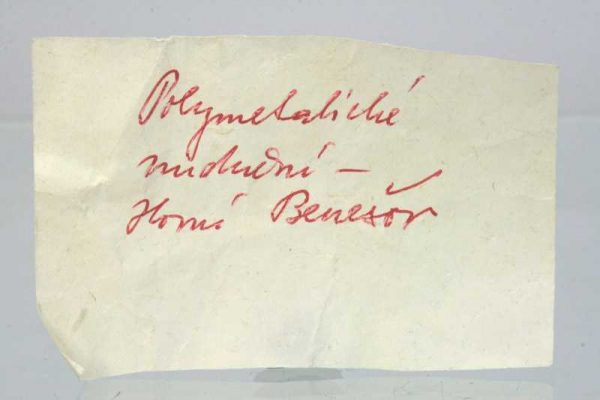 Polymetalické
zrudnění –
Horní Benešov